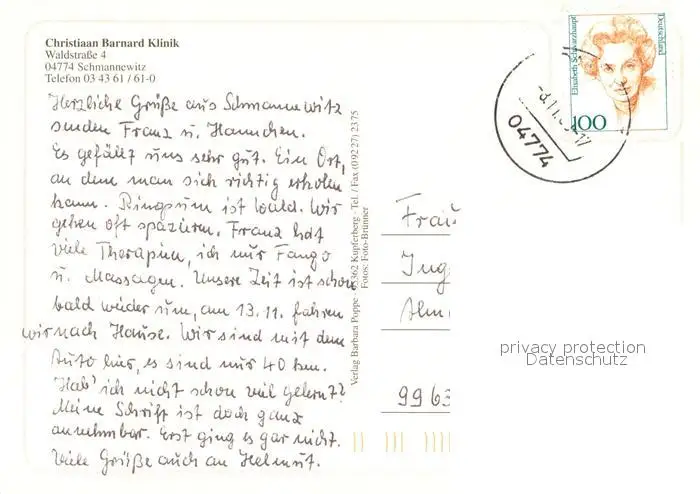 Christiaan Barnard Klinik
Waldstraße 4
04774 Schmannewitz
Telefon 03 43 61 / 61-0
Herzliche Grüße aus Schmannewitz
senden Franz u. Hannchen.
Es gefällt uns sehr gut. Ein Ort,
an dem man sich richtig erholen
kann. Ringsum ist Wald. Wir
gehen oft spazieren. Franz hat
viele Therapien, ich nur Fango
u. Massagen. Unsere Zeit ist schon
bald wieder um, am 13.11. fahren
wir nach Hause. Wir sind mit dem
Auto hier, es sind nur 40 km.
Hab' ich nicht schon viel gelernt?
Meine Schrift ist doch ganz
annehmbar. Erst ging es gar nicht.
Viele Grüße auch an Helmut.
Verlag Barbara Poppe · 95362 Kupferberg · Tel. / Fax (092 27) 23 75
Fotos: Foto-Brünner
Elisabeth Schwarzhaupt
Deutschland
100
04774
Frau
Ing
9963
privacy protection
Datenschutz